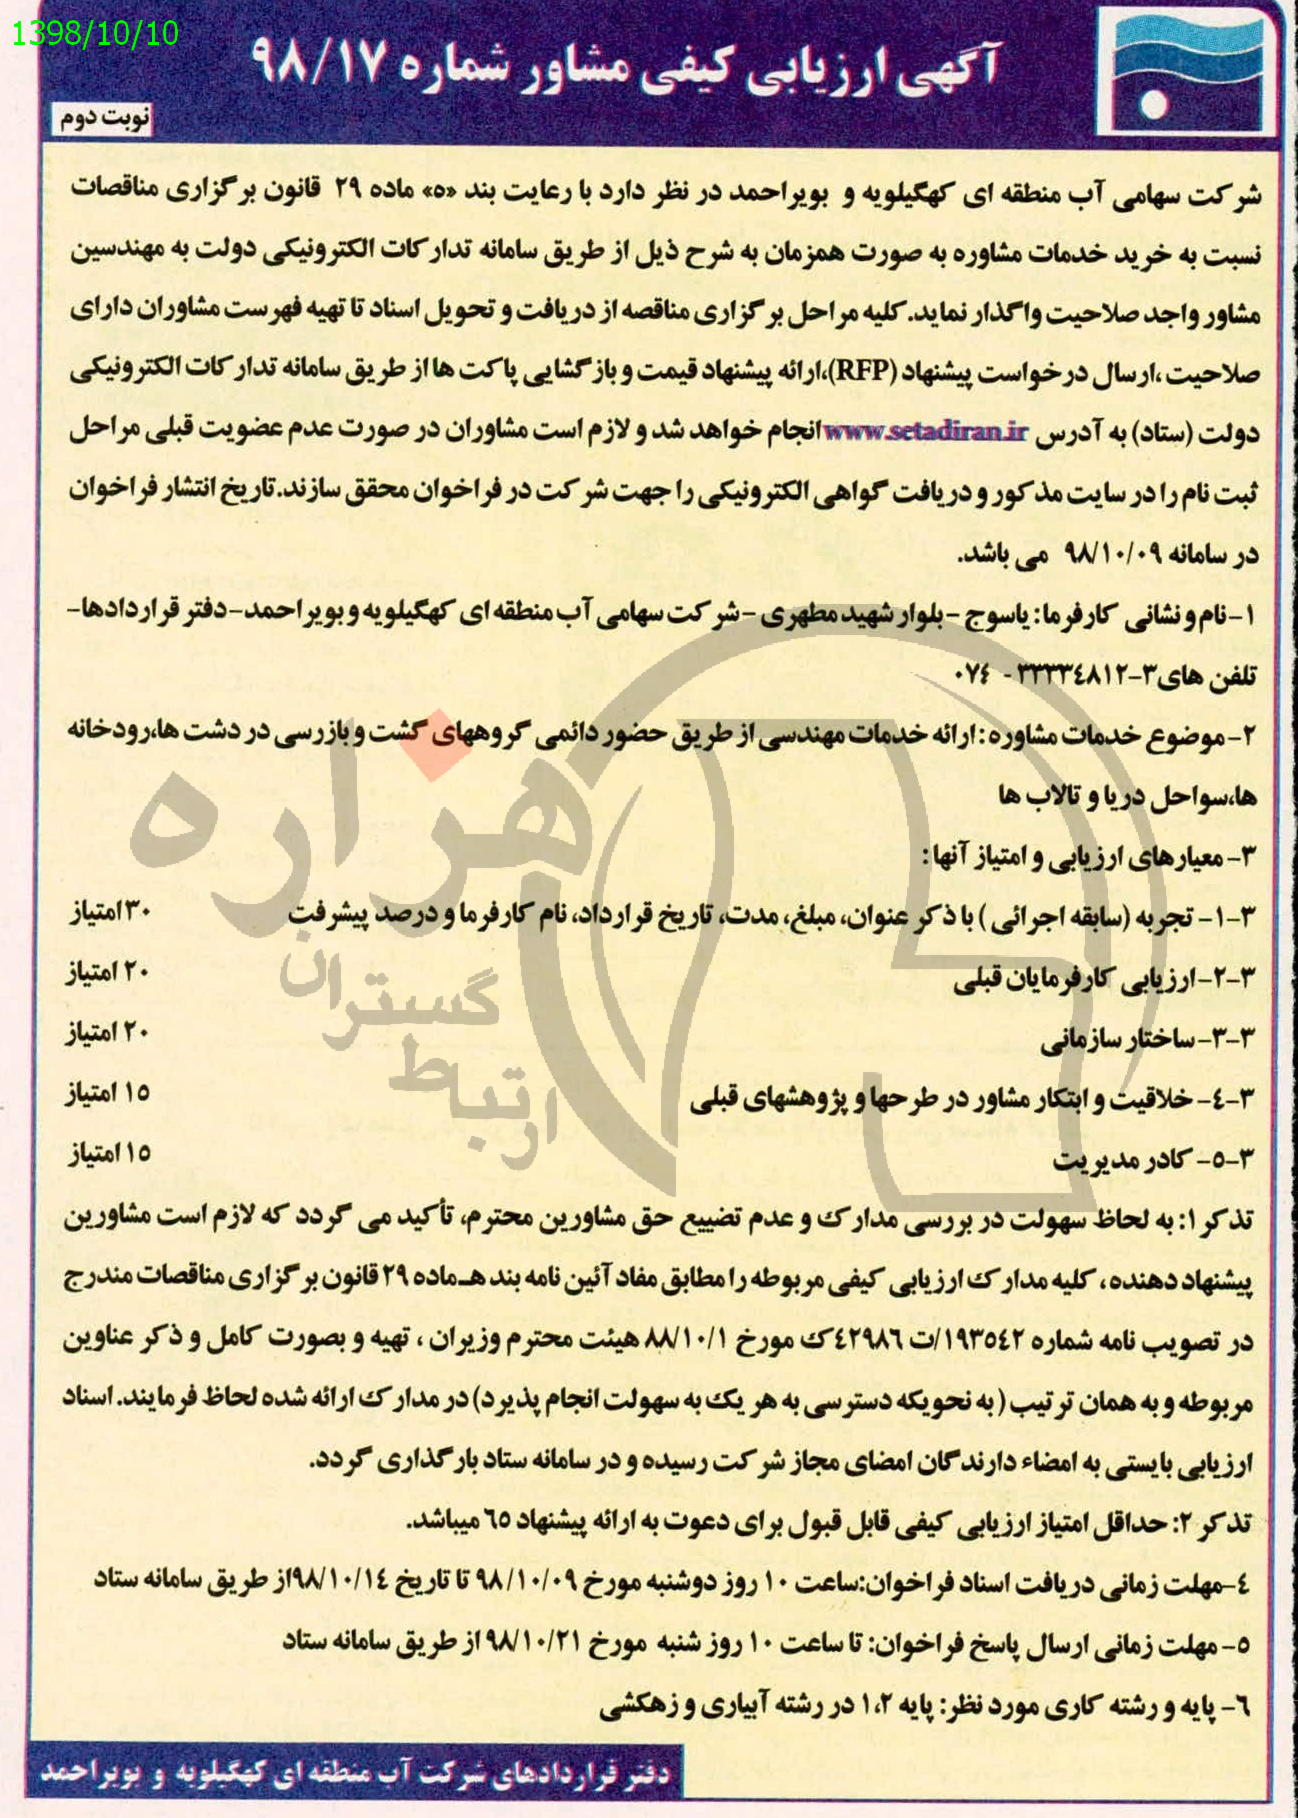 1398/10/10
آگهی ارزیابی کیفی مشاور شماره ۹۸/۱۷
نوبت دوم
شرکت سهامی آب منطقه ای کهگیلویه و بویراحمد در نظر دارد با رعایت بند «ه» ماده ۲۹ قانون برگزاری مناقصات
نسبت به خرید خدمات مشاوره به صورت همزمان به شرح ذیل از طریق سامانه تدارکات الکترونیکی دولت به مهندسین
مشاور واجد صلاحیت واگذار نماید. کلیه مراحل برگزاری مناقصه از دریافت و تحویل اسناد تا تهیه فهرست مشاوران دارای
صلاحیت ،ارسال درخواست پیشنهاد (RFP)،ارائه پیشنهاد قیمت و بازگشایی پاکت ها از طریق سامانه تدارکات الکترونیکی
دولت (ستاد) به آدرس www.setadiran.ir انجام خواهد شد و لازم است مشاوران در صورت عدم عضویت قبلی مراحل
ثبت نام را در سایت مذکور و دریافت گواهی الکترونیکی را جهت شرکت در فراخوان محقق سازند. تاریخ انتشار فراخوان
در سامانه ۹۸/۱۰/۰۹ می باشد.
۱-نام و نشانی کارفرما: یاسوج -بلوار شهید مطهری -شرکت سهامی آب منطقه ای کهگیلویه و بویراحمد-دفتر قراردادها-
تلفن های ۳-۳۳۳۳٤۸۱۲ - ۰۷٤
۲-موضوع خدمات مشاوره: ارائه خدمات مهندسی از طریق حضور دائمی گروههای گشت و بازرسی در دشت ها،رودخانه
ها،سواحل دریا و تالاب ها
۳- معیارهای ارزیابی و امتیاز آنها:
۳-۱- تجربه (سابقه اجرائی ) با ذکر عنوان، مبلغ، مدت، تاریخ قرارداد، نام کارفرما و درصد پیشرفت ۳۰امتیاز
۳-۲-ارزیابی کارفرمایان قبلی ۲۰ امتیاز
۳-۳- ساختار سازمانی ۲۰ امتیاز
۳-٤- خلاقیت و ابتکار مشاور در طرحها و پژوهشهای قبلی ۱۵ امتیاز
۳-۵- کادر مدیریت ۱۵ امتیاز
تذکر ۱: به لحاظ سهولت در بررسی مدارک و عدم تضییع حق مشاورین محترم، تأکید می گردد که لازم است مشاورین
پیشنهاد دهنده ، کلیه مدارک ارزیابی کیفی مربوطه را مطابق مفاد آئین نامه بند هـ ماده ۲۹ قانون برگزاری مناقصات مندرج
در تصویب نامه شماره ۱۹۳۵٤۲/ت ٤۲۹۸٦ک مورخ ۸۸/۱۰/۱ هیئت محترم وزیران ، تهیه و بصورت کامل و ذکر عناوین
مربوطه و به همان ترتیب ( به نحویکه دسترسی به هر یک به سهولت انجام پذیرد) در مدارک ارائه شده لحاظ فرمایند. اسناد
ارزیابی بایستی به امضاء دارندگان امضای مجاز شرکت رسیده و در سامانه ستاد بارگذاری گردد.
تذکر ۲: حداقل امتیاز ارزیابی کیفی قابل قبول برای دعوت به ارائه پیشنهاد ٦۵ میباشد.
٤-مهلت زمانی دریافت اسناد فراخوان:ساعت ۱۰ روز دوشنبه مورخ ۹۸/۱۰/۰۹ تا تاریخ ۹۸/۱۰/۱٤از طریق سامانه ستاد
۵- مهلت زمانی ارسال پاسخ فراخوان: تا ساعت ۱۰ روز شنبه مورخ ۹۸/۱۰/۲۱ از طریق سامانه ستاد
٦- پایه و رشته کاری مورد نظر: پایه ۱،۲ در رشته آبیاری و زهکشی
دفتر قراردادهای شرکت آب منطقه ای کهگیلویه و بویراحمد
هزاره
گستران
ارتباط